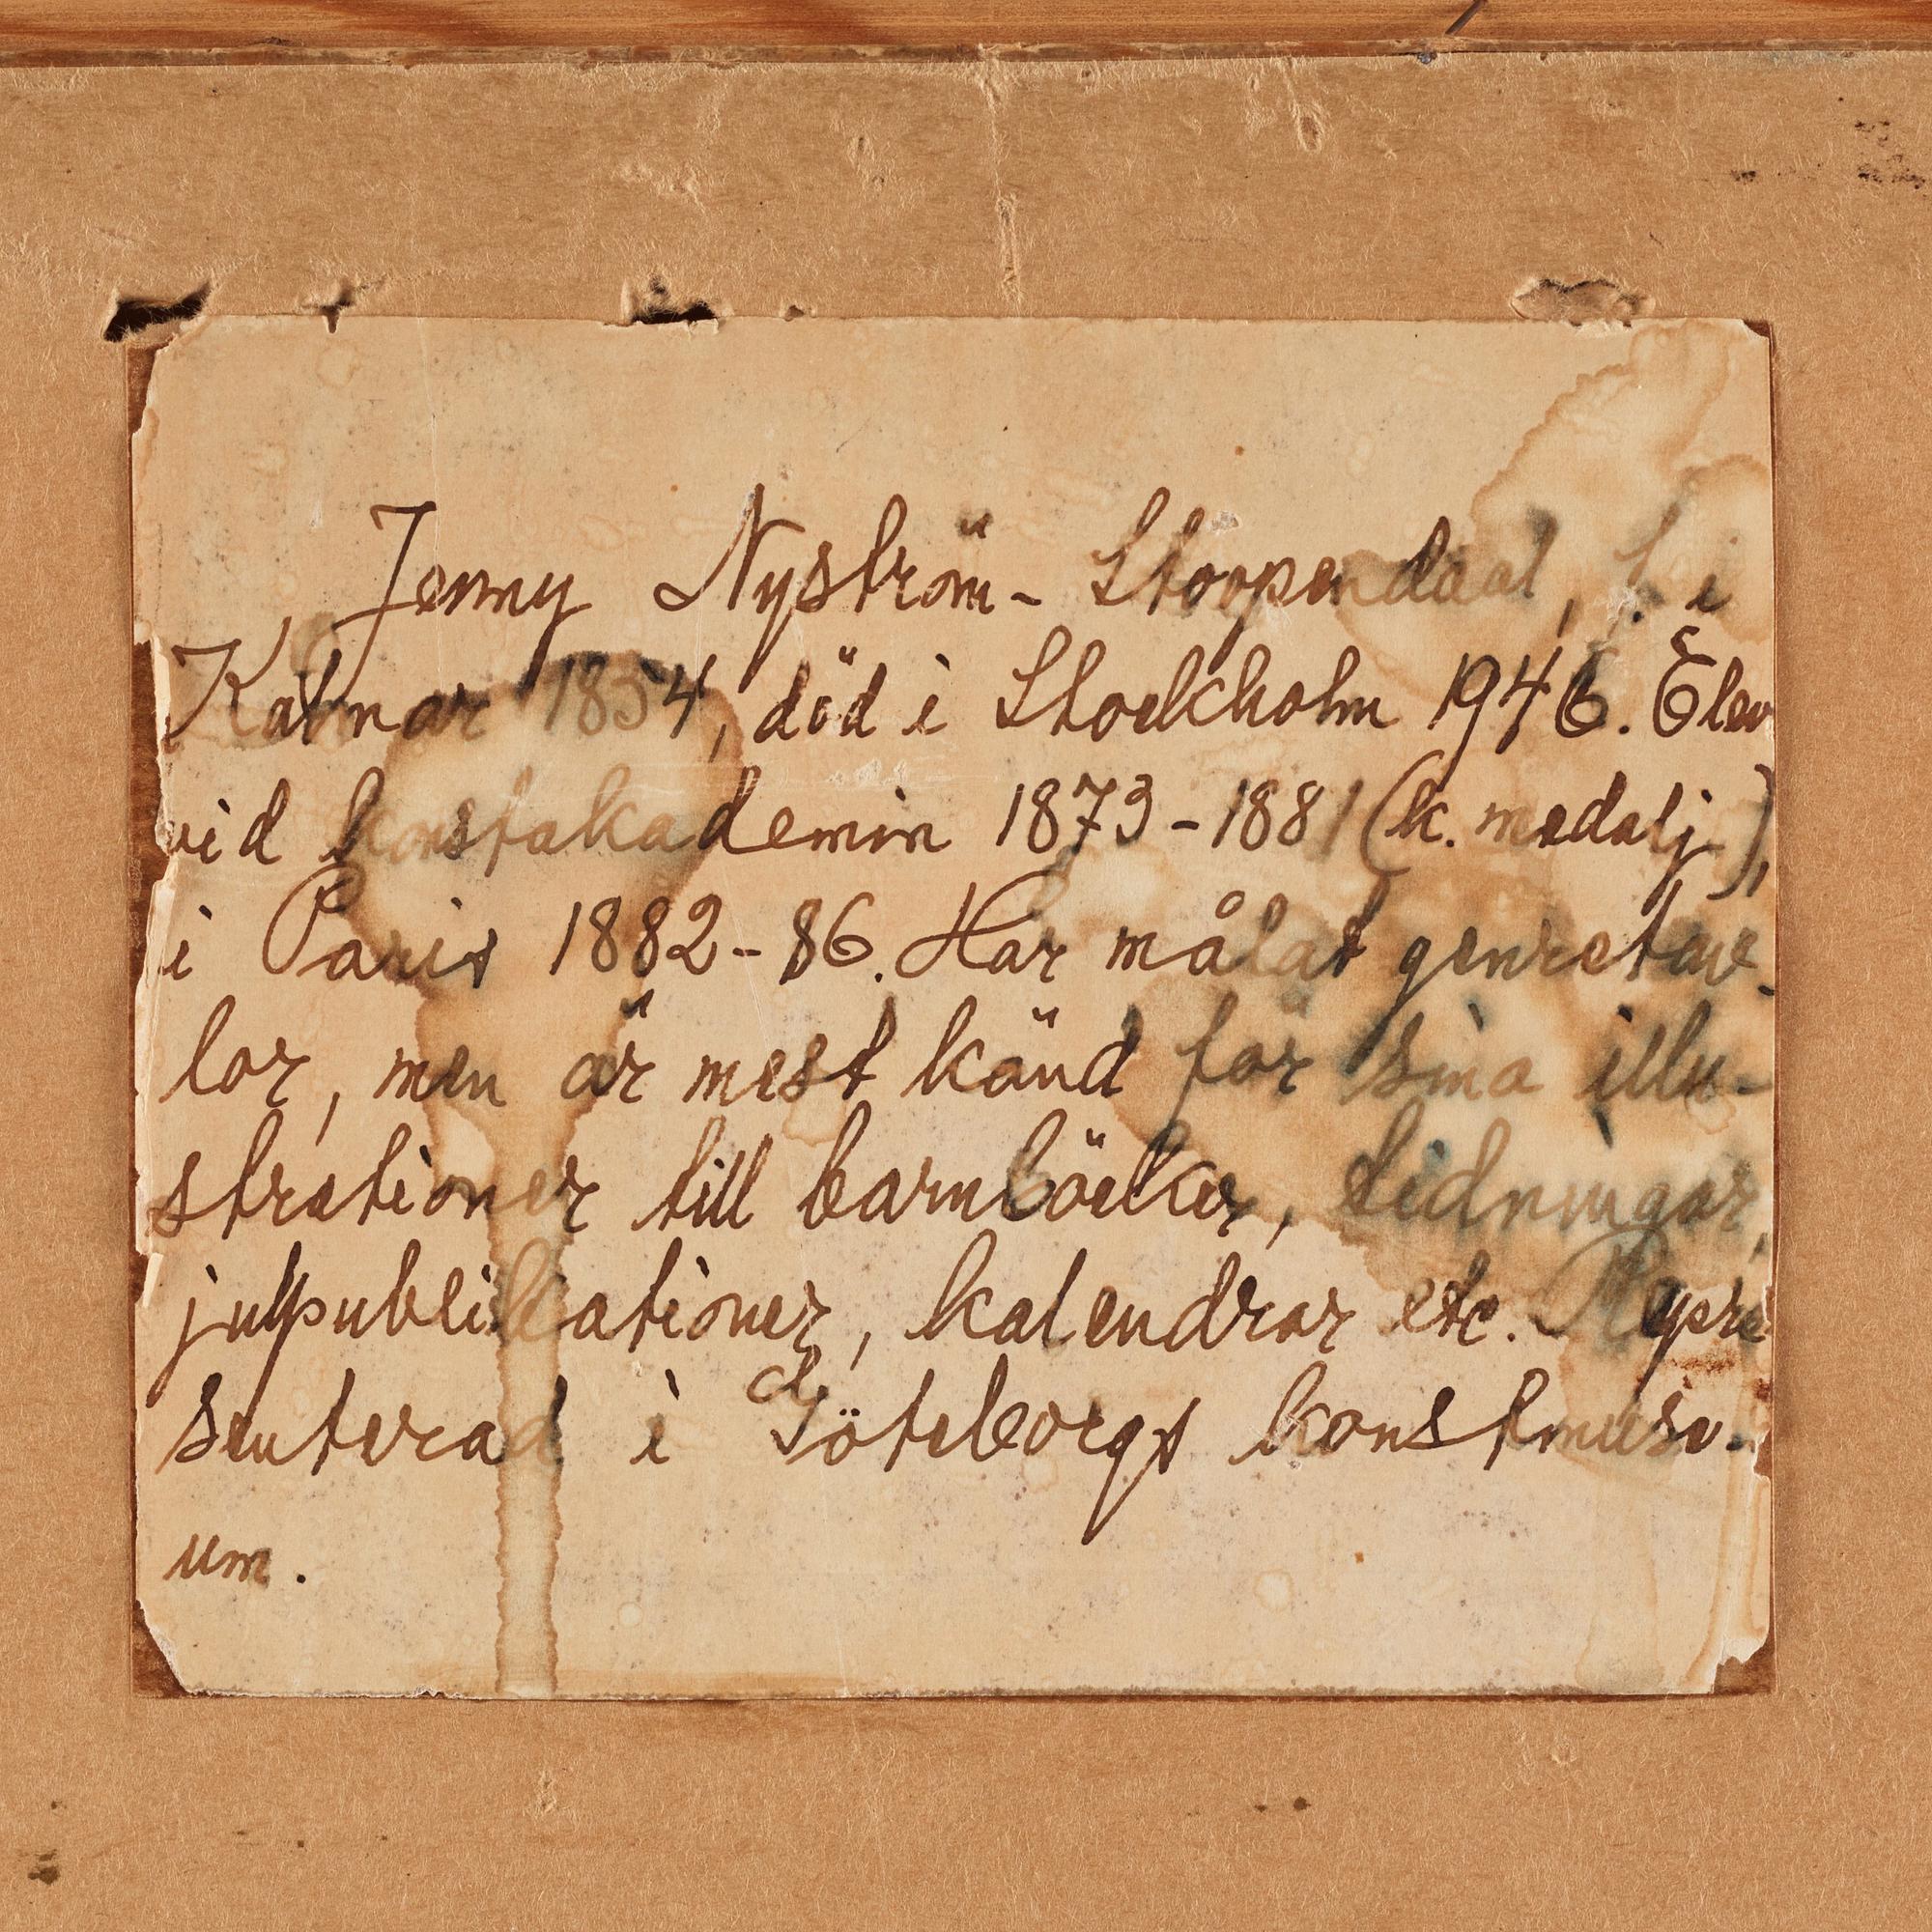 Jenny Nyström-Stoopendaal, f. i
Kalmar 1854, död i Stockholm 1946. Elev
vid konstakademin 1873-1881 (k. medalj),
i Paris 1882-86. Har målat genretav-
lor, men är mest känd for sina illu-
strationer till barnböcker, tidningar,
julpublikationer, kalendrar etc. Repre
senterad i Göteborgs konstmuse-
um.